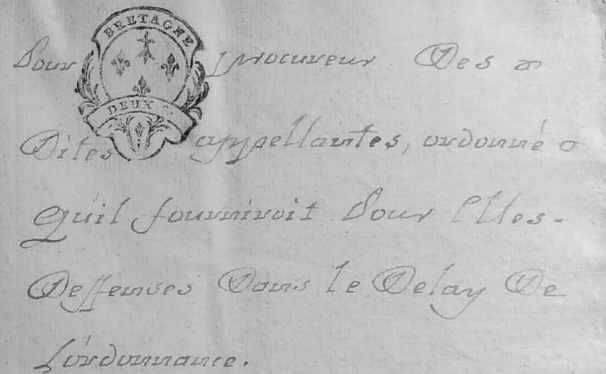 BRETAGNE
DEUX S.
Pour procureur Des
Dites appellantes, ordonné
Qu'il fourniroit Pour Elles
Deffenses Dans le Delay De
L'ordonnance.